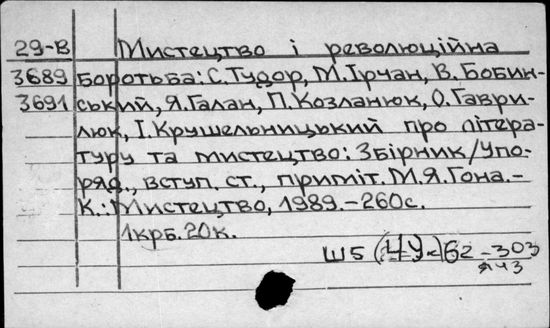 29-В Мистецтво і революційна
3689 боротьба: С.Тудор, М.Ірчан, В. Бобин-
3691 ський, Я.Галан, П.Козланюк, О.Гаври-
люк, І.Крушельницький про літера-
туру та мистецтво: Збірник/Упо-
ряд., вступ. ст., приміт. М.Я.Гона.-
К.: Мистецтво, 1989.-260с.
1крб.20к.
Ш5(4Ук)62-303
я43